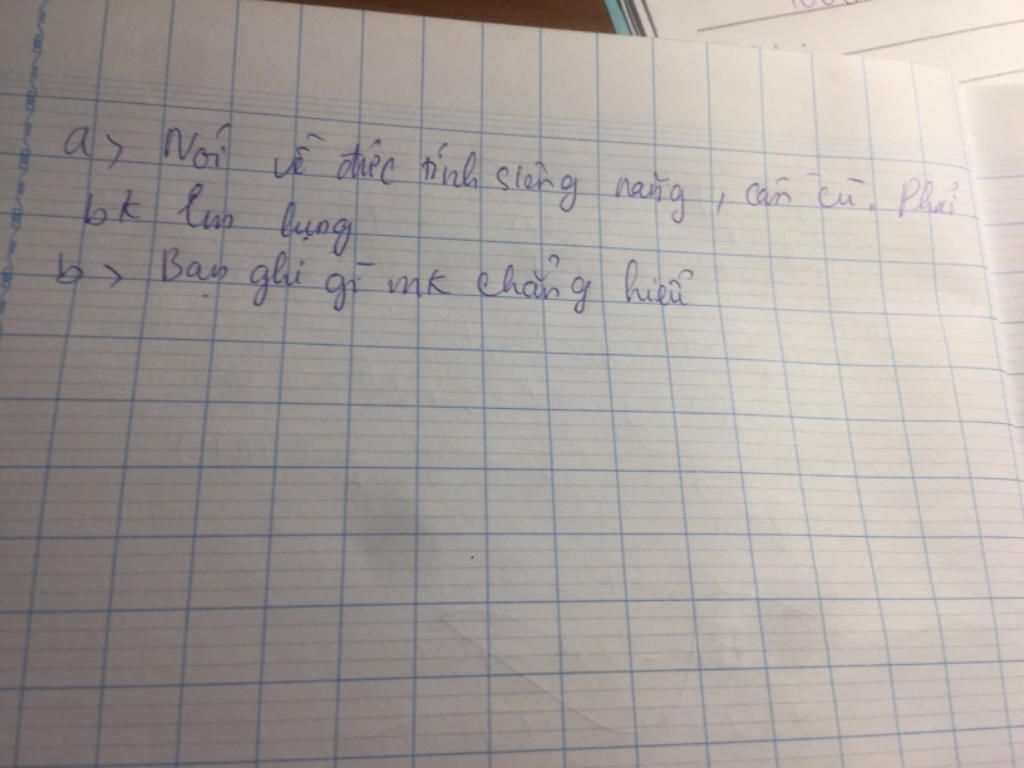 a> Nói về đức tính siêng năng, cần cù. Phải
bk lao lụng
b> Bạn ghi gì mk chẳng hiểu